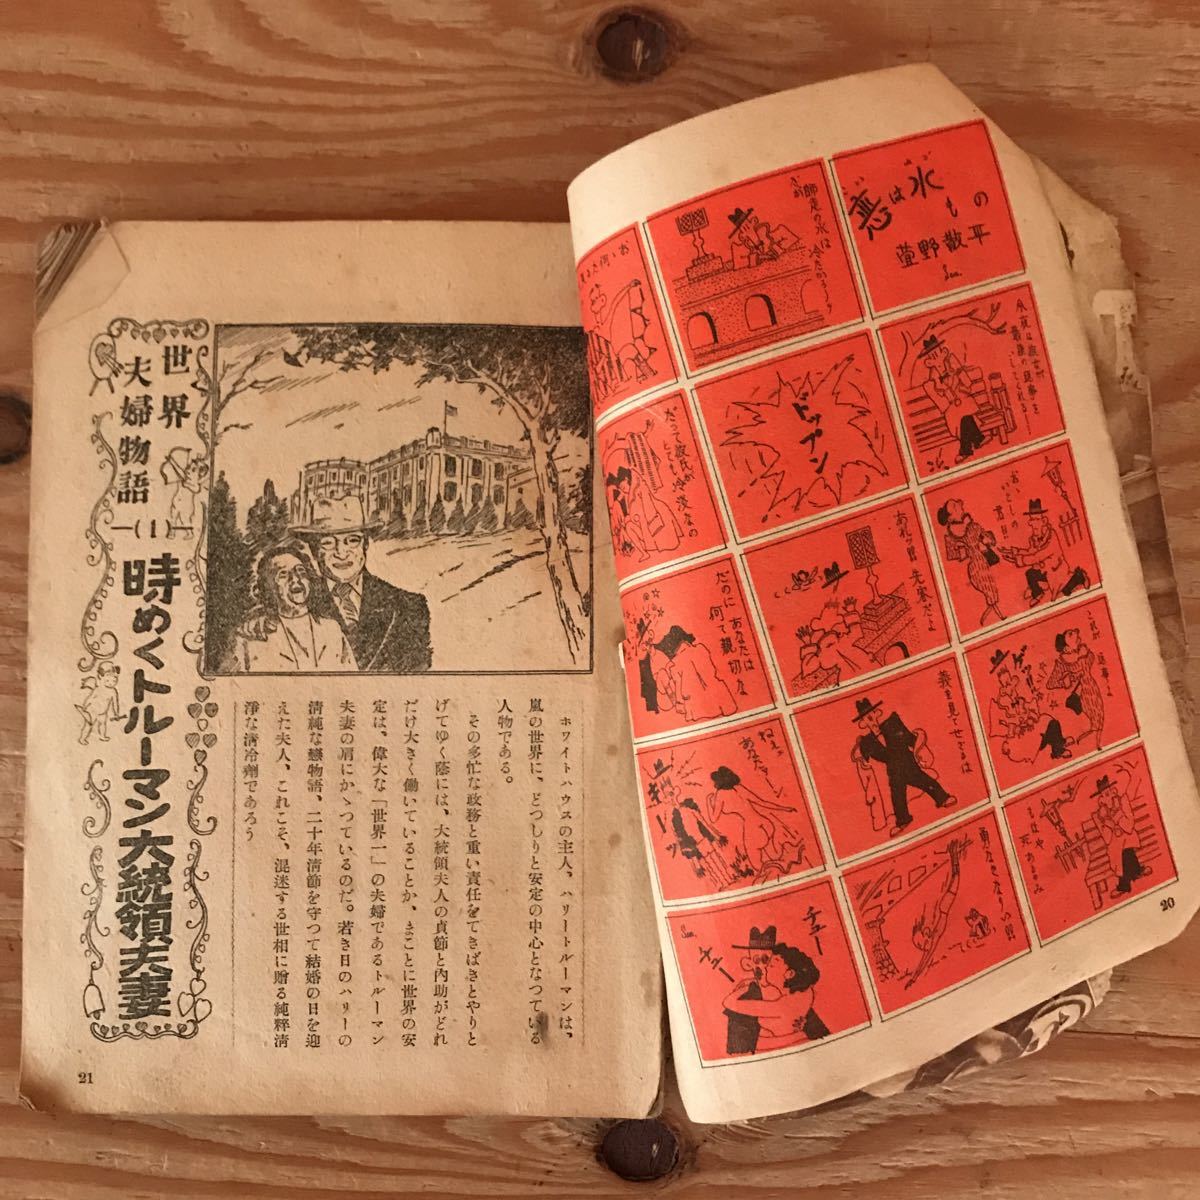 戀は水
もの
萱野散平
師走の水は
冷たかろう
ドップン
あれは
最後の返事を
おゝ
いとしの
君よ!!
これが
返事よ
もはや
死あるのみ
義を見てせざるは
勇なきなり!!!
だって彼氏が
とても冷淡なの
あなたは
何て親切な
ねえ
あなたァ
チュー
チュー
20
世界
夫婦物語
―(1)―
時めくトルーマン大統領夫妻
ホワイトハウスの主人、ハリートルーマンは、
嵐の世界に、どつしりと安定の中心となつている
人物である。
その多忙な政務と重い責任をてきぱきとやりと
げてゆく蔭には、大統領夫人の貞節と内助がどれ
だけ大きく働いていることか、まことに世界の安
定は、偉大な「世界一」の夫婦であるトルーマン
夫妻の肩にかゝつているのだ。若き日のハリーの
清純な戀物語、二十年淸節を守つて結婚の日を迎
えた夫人、これこそ、混迷する世相に贈る純粹淸
淨な淸冷劑であろう
21